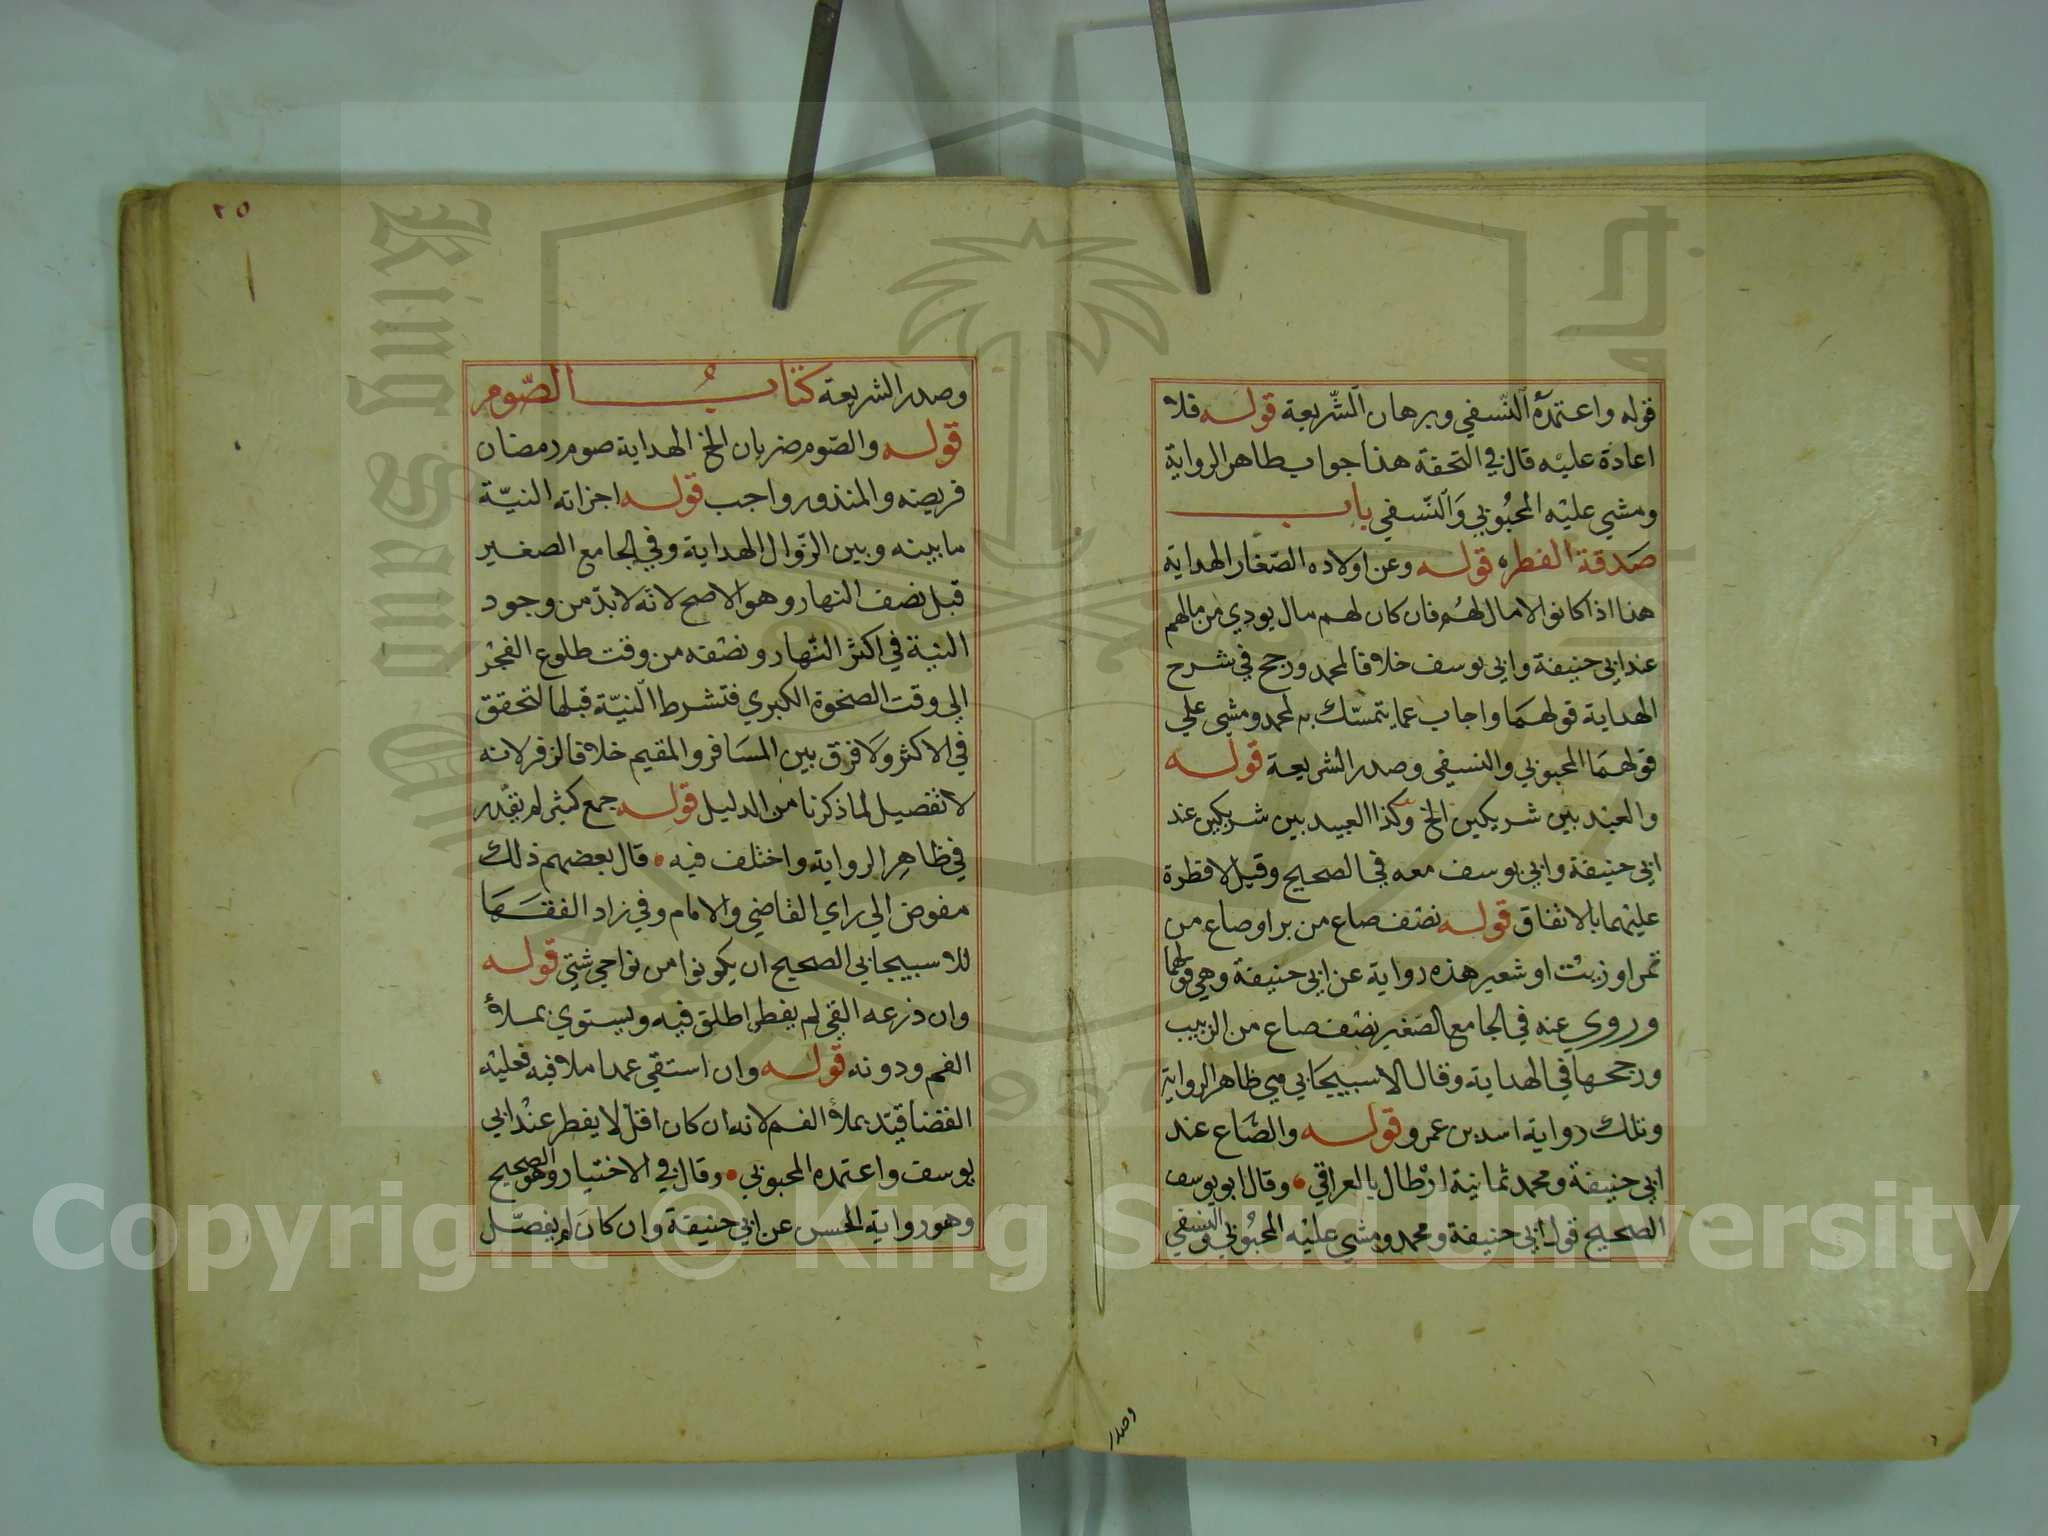 قوله واعتمده النّسفي وبرهان الشّريعة قوله فلا
اعادة عليه قال في التحفة هذا جواب ظاهر الرواية
ومشي عليه المحبُوبي وَالنّسفي باب
صَدقة الفطره قوله وعن اولاده الصّغار الهداية
هذا اذا كانوا لا مال لهُم فان كان لهم مال يودي من مالهم
عند ابي حنيفة وابي يوسف خلافا لمحمد ورجح في شرح
الهداية قولهمَا واجاب عما يتمسّك به لمحمد ومشي علي
قولهمَا المحبوبي والنسفي وصدر الشريعة قوله
والعبْد بين شريكين الخ وكذا العبيد بين شريكين عند
ابي حنيفة وابي يوسف معه في الصحيح وقيل لا فطرة
عليْهما بالاتفاق قوله نصْف صاع من بر او صاع من
تمر او زبيْب او شعير هذه رواية عن ابي حنيفة وهي قولهما
وروي عنه في الجامع الصّغير نصْف صاع من الزبيب
ورجحها في الهداية وقال الاسبيجابي هي ظاهر الرواية
وتلك رواية اسد بن عمرو قوله والصّاع عند
ابي حنيفة ومحمد ثمانية ارْطال بالعراقي وقال ابو يوسف
الصحيح قول ابي حنيفة ومحمد ومشي عليْه المحبُوبي والنسفي
وصدر
٢٥
وصدر الشريعة كتابُ الصّوم
قوله والصّوم ضربان الخ الهداية صوم رمضان
فريضه والمنذور واجب قوله اجزاته النيّة
ما بينه وبين الزّوال الهداية وفي الجامع الصغير
قبل نصف النهار وهو الاصح لانّه لا بدّ من وجود
النية في اكثر النّهار ونصْفه من وقت طلوع الفجْر
الي وقت الضحوة الكبري فتشرط النيّة قبلها لتحقق
في الاكثر وَلا فرق بين المسَافر والمقيم خلافا لزفر لانه
لا تفصيل لما ذكرنا من الدليل قوله جمع كثير لم يقّدر
في ظاهِر الرواية واختلف فيه قال بعضهم ذلك
مفوض الي راي القاضي والامام وفي زاد الفقهَا
للاسبيجابي الصحيح ان يكونوا من نواحي شتي قوله
وان ذرعه القي لم يفطر اطلق فيه ويستوي بملأ
الفم ودونه قوله وان استقي عمدا ملا فيه فعليْه
القضا قيّد بملأ الفم لانه ان كان اقلّ لا يفطر عنْد ابي
يوسف واعتمده المحبوبي وقال في الاختيار وهو الصحيح
وهو رواية الحسن عن ابي حنيفة وان كان لم يفصّل
Copyright © King Saud University
King Saud University
1957